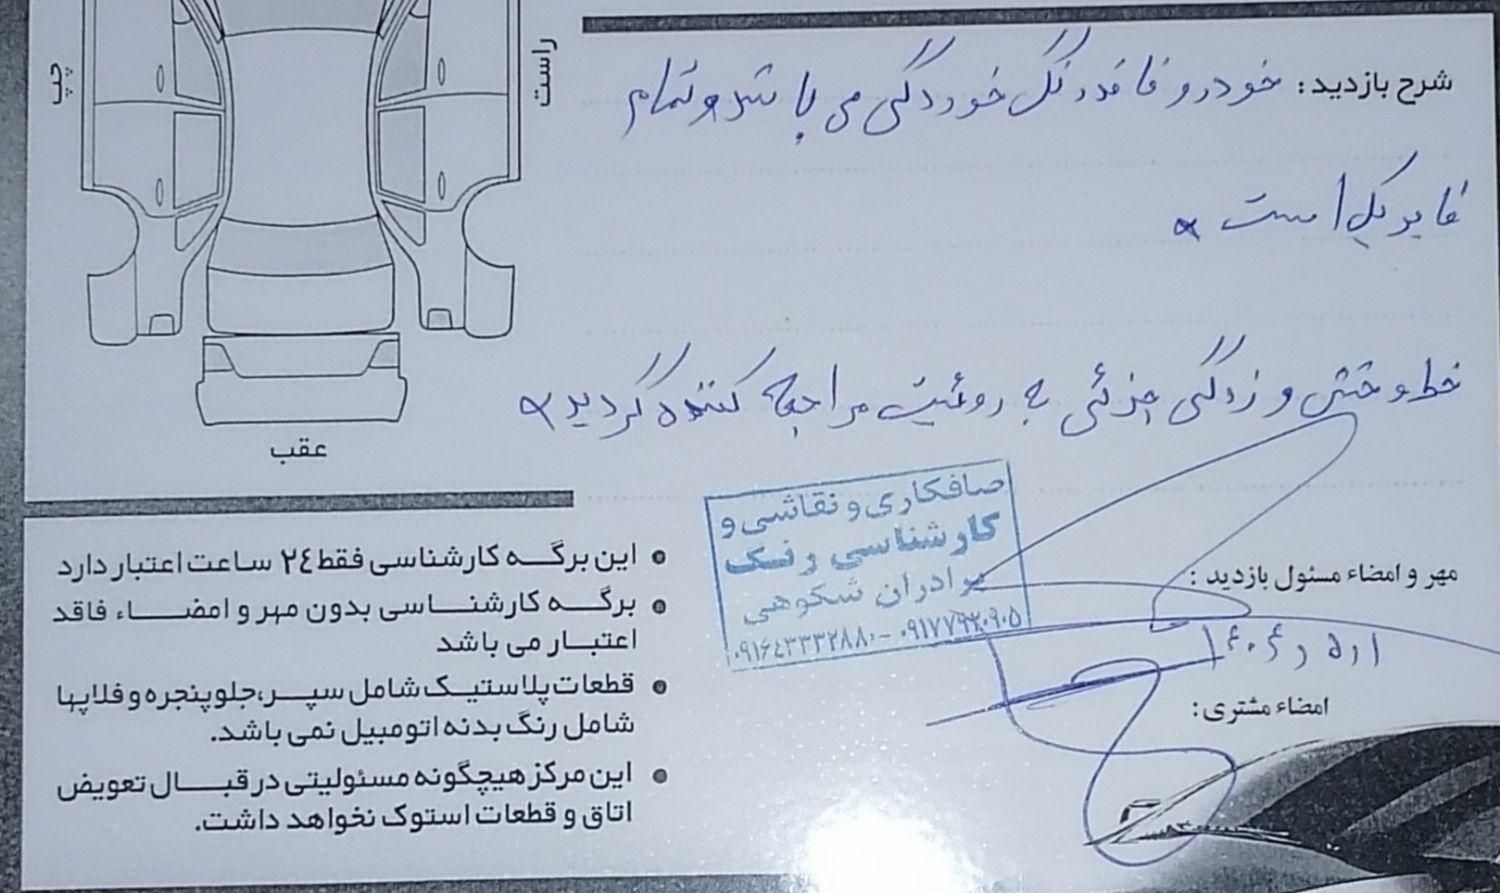 چپ
راست
شرح بازدید: خودرو فاقد رنگ خوردگی می باشد و تمام
فابریک است
خط و خش و زدگی جزئی به روئیت مراجعه کننده گردید
عقب
صافکاری و نقاشی و
کارشناسی رنگ
برادران شکوهی
۰۹۱۶۴۳۳۳۲۸۸۰ - ۰۹۱۷۷۹۲۰۹۰۵
مهر و امضاء مسئول بازدید:
امضاء مشتری:
این برگه کارشناسی فقط ٢٤ ساعت اعتبار دارد
برگه کارشناسی بدون مهر و امضاء فاقد
اعتبار می باشد
قطعات پلاستیک شامل سپر،جلو پنجره و فلاپها
شامل رنگ بدنه اتومبیل نمی باشد.
این مرکز هیچگونه مسئولیتی در قبال تعویض
اتاق و قطعات استوک نخواهد داشت.